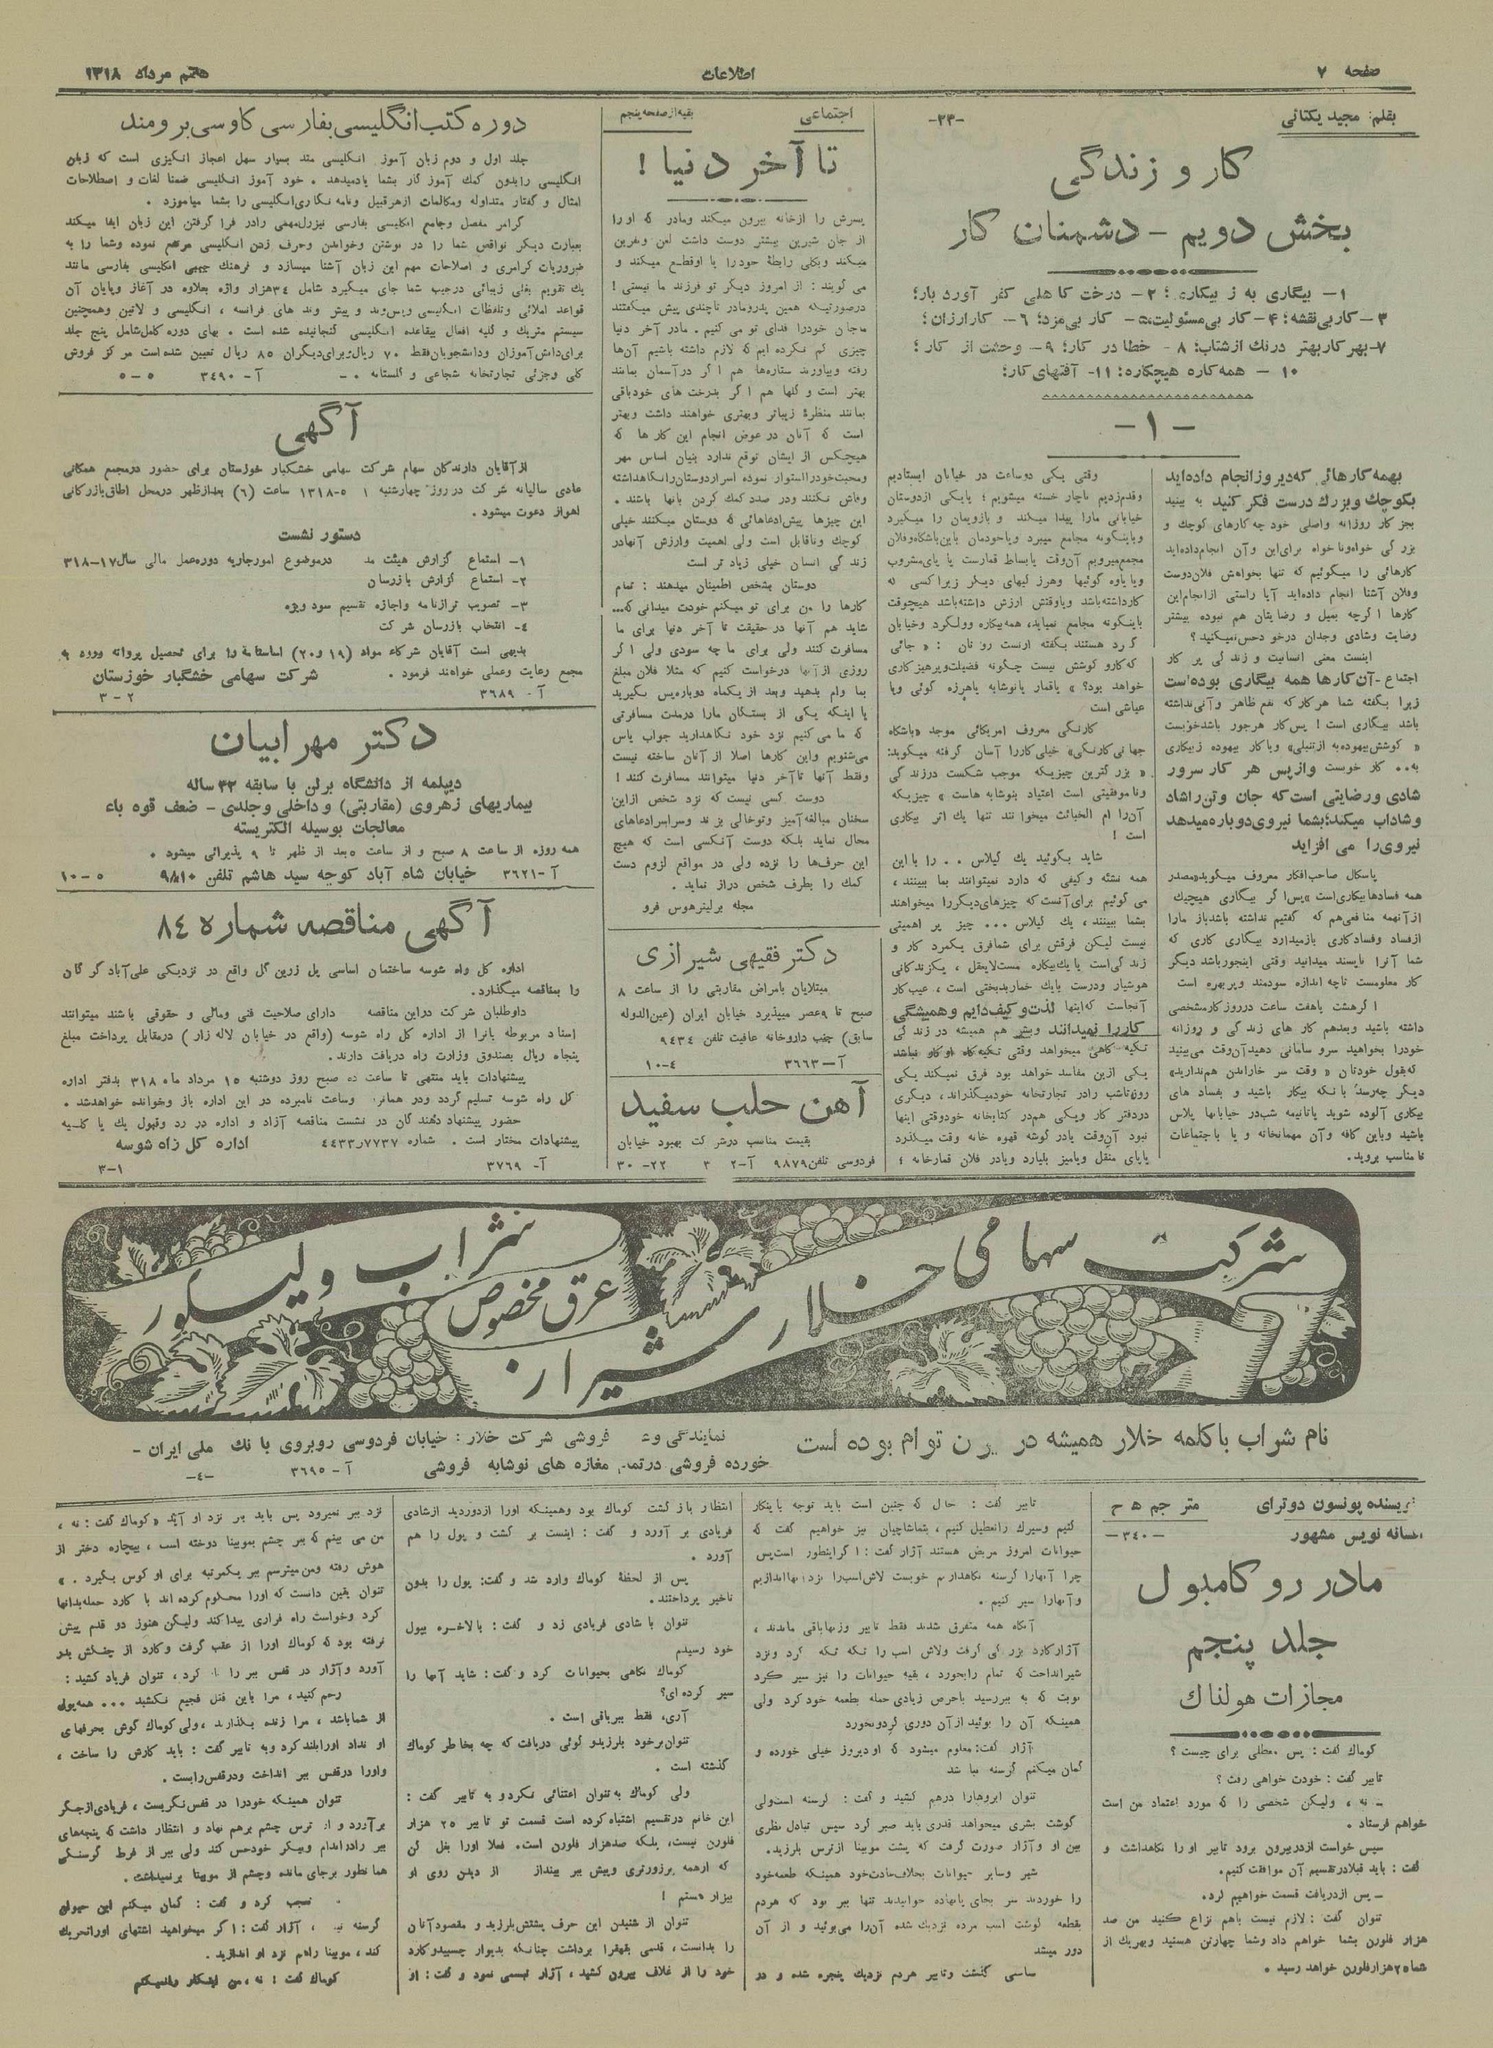 صفحه ۷
اطلاعات
هشتم مرداد ۱۳۱۸
بقلم: مجید یکتائی
-۲۳-
کار و زندگی
بخش دویم - دشمنان کار
۳- کار بی نقشه؛ ۴- کار بی مسئولیت؛ ۵- کار بی مزد؛ ۶- کار ارزان؛
۷- بهر کار بهتر درنگ از شتاب؛ ۸- خطا در کار؛ ۹- وحشت از کار؛
۱۰ - همه کاره هیچکاره؛ ۱۱- آفتهای کار؛
-۱-
بهمه کارهائی که دیروز انجام داده‌اید
بکوچک و بزرک درست فکر کنید به بینید
بجز کار روزانه واصلی خود چه کارهای کوچک و
بزرگی خواه و ناخواه برای این و آن انجام داده‌اید
کارهائی را میگوئیم که تنها بخواهش فلان دوست
وفلان آشنا انجام داده‌اید آیا راستی از انجام این
کارها اگرچه بمیل و رضایتان هم نبوده بیشتر
رضایت وشادی وجدان درخود حس نمیکنید؟
اینست معنی انسانیت و زندگی پر کار
اجتماع - آن کارها همه بیگاری بوده است
باشد بیگاری است! پس کار هرجور باشد خوبست
شادی و رضایتی است که جان وتن را شاد
و شاداب میکند؛ بشما نیروی دوباره میدهد
نیروی را می افزاید
پاسکال صاحب افکار معروف میگوید «مصدر
همه فسادها بیکاری است» پس اگر بیگاری هیچیک
از آنهمه منافعی هم که گفتیم نداشته باشد باز ما را
از فساد وفسادکاری بازمیدارد بیگاری کاری که
شما آنرا ناپسند میدانید وقتی اینجور باشد دیگر
کار معلومست تا چه اندازه سودمند وپر بهره است
اگر هشت یاهفت ساعت در روز کار مشخصی
داشته باشید وبعد هم کار های زندگی و روزانه
خودرا بخواهید سرو سامانی دهید آن وقت می بینید
که بقول خودتان « وقت سر خاراندن هم ندارید»
دیگر چه رسد باینکه بیکار باشید و بفساد های
بیکاری آلوده شوید یا تا نیمه شب در خیابانها پلاس
باشید وباین کافه وآن مهمانخانه و یا باجتماعات
نامناسب بروید.
وقتی یکی دوساعت در خیابان ایستادیم
وقدم زدیم ناچار خسته میشویم؛ یا یکی از دوستان
خیابانی مارا پیدا میکند و بازویمان را میگیرد
وباینگونه مجامع میبرد ویا خودمان باین باشگاه و فلان
مجمع میرویم آن وقت یا بساط قمارست یا پای مشروب
ویا یاوه گوئیها وهرز لیهای دیگر زیرا کسی که
کار داشته باشد ویا وقتش ارزش داشته باشد هیچوقت
باینگونه مجامع نمیاید، همه بیکاره وولگرد وخیابان
که کار و کوشش نیست چگونه فضیلت و پرهیزکاری
خواهد بود؟» یا قمار یا نوشابه یا هرزه گوئی ویا
عیاشی است
کارنگی معروف امریکائی موجد «باشگاه
جهانی کارنگی» خیلی کار را آسان گرفته میگوید:
« بزرگترین چیزیکه موجب شکست در زندگی
وناموفقیتی است اعتیاد بنوشابه هاست » چیزیکه
آن را ام الخبائث میخوانند تنها یک اثر بیکاری
است!
شاید بگوئید یک گیلاس .. را با این
همه نشئه و کیفی که دارد نمیتوانند بما ببینند،
می گوئیم برای آنست که چیزهای دیگر را میخواهند
بشما ببینند، یک گیلاس ... چیز پر اهمیتی
نیست لیکن فرقش برای شما فرق یکمرد کار و
زندگی است با یک بیکاره مست لایعقل، یک زندگانی
هوشیار ودرست با یک خمار بدبختی است، عیب کار
آنجاست که اینها لذت و کیف دایم و همیشگی
کار را نمیدانند
یکی از این مفاسد خواهد بود فرق نمیکند یکی
روز تا شب را در تجارتخانه خود میگذراند، دیگری
در دفتر کار ویکی هم در کتابخانه خود وقتی اینها
نبود آن وقت یا در گوشه قهوه خانه وقت میگذرد
یا پای منقل ویا میز بلیارد ویا در فلان قمارخانه
اجتماعی
بقیه از صفحه پنجم
تا آخر دنیا!
پسرش را از خانه بیرون میکند ومادر که او را
از جان شیرین بیشتر دوست داشت لعن ونفرین
میکند وبکلی رابطهٔ خود را با او قطع میکند و
می گویند: از امروز دیگر تو فرزند ما نیستی!
درصورتیکه همین پدر ومادر تا چندی پیش میگفتند
ما جان خود را فدای تو می کنیم. مادر آخر دنیا
چیزی گم نکرده ایم که لازم داشته باشیم آن‌ها
رفته وبیاورند ستاره‌ها هم اگر در آسمان بمانند
بهتر است و گلها هم اگر بدرخت های خود باقی
بمانند منظرهٔ زیباتر وبهتری خواهند داشت وبهتر
است که آنان در عوض انجام این کارها که
هیچکس از ایشان توقع ندارد بنیان اساس مهر
ومحبت خود را استوار نموده اسرار دوستان را نگاهداشته
وفاش نکنند ودر صدد کمک کردن بآنها باشند.
این چیزها پیش ادعاهائی که دوستان میکنند خیلی
کوچک وناقابل است ولی اهمیت وارزش آنها در
زندگی انسان خیلی زیادتر است
دوستان بشخص اطمینان میدهند: تمام
کارها را من برای تو میکنم خودت میدانی که...
شاید هم آنها در حقیقت تا آخر دنیا برای ما
مسافرت کنند ولی برای ما چه سودی ولی اگر
روزی از آنها درخواست کنیم که مثلا فلان مبلغ
بما وام بدهید وبعد از یکماه دوباره پس بگیرید
یا اینکه یکی از بستگان ما را در مدت مسافرتی
که ما می‌کنیم نزد خود نگاهدارید جواب یاس
می‌شنویم واین کارها اصلا از آنان ساخته نیست
وفقط آنها تا آخر دنیا میتوانند مسافرت کنند!
دوست کسی نیست که نزد شخص از این
سخنان مبالغه آمیز وتوخالی بزند وسراسر ادعاهای
محال نماید بلکه دوست آنکسی است که هیچ
این حرف‌ها را نزده ولی در مواقع لزوم دست
کمک را بطرف شخص دراز نماید.
مجله برلینر هوس فرو
دکتر فقیهی شیرازی
مبتلایان بامراض مقاربتی را از ساعت ۸
صبح تا ۹ عصر میپذیرد خیابان ایران (عین الدوله
سابق) جنب داروخانه عافیت تلفن ۹۴۳۴
آ-۳۶۶۳ ۴-۱۰
آهن حلب سفید
بقیمت مناسب در شرکت بهبود خیابان
فردوسی تلفن ۹۸۷۹
دوره کتب انگلیسی بفارسی کاوسی برومند
جلد اول و دوم زبان آموز انگلیسی متد بسیار سهل اعجاز انگیزی است که زبان
انگلیسی را بدون کمک آموزگار بشما یاد میدهد. خود آموز انگلیسی ضمنا لغات و اصطلاحات
امثال و گفتار متداوله ومکالمات از هر قبیل ونامه نگاری انگلیسی را بشما میاموزد.
گرامر مفصل وجامع انگلیسی بفارسی نیز رل مهمی را در فرا گرفتن این زبان ایفا میکند
بعبارت دیگر نواقص شما را در نوشتن وخواندن وحرف زدن انگلیسی مرتفع نموده وشما را به
ضروریات گرامری و اصلاحات مهم این زبان آشنا میسازد و فرهنگ جیبی انگلیسی بفارسی مانند
یک تقویم بغلی زیبائی در جیب شما جای میگیرد شامل ۳۴ هزار واژه بعلاوه در آغاز وپایان آن
قواعد املائی وتلفظات انگلیسی وپس‌وند و پیش وند های فرانسه، انگلیسی و لاتین وهمچنین
سیستم متریک و کلیه افعال بیقاعده انگلیسی گنجانیده شده است. بهای دوره کامل شامل پنج جلد
برای دانش آموزان ودانشجویان فقط ۷۰ ریال وبرای دیگران ۸۵ ریال تعیین شده است مرکز فروش
کلی وجزئی تجارتخانه شجاعی و گلستانه آ-۳۴۹۰ ۵-۵
آگهی
از آقایان دارندگان سهام شرکت سهامی خشگبار خوزستان برای حضور در مجمع همگانی
اهواز دعوت میشود.
دستور نشست
۲- استماع گزارش بازرسان
۳- تصویب ترازنامه واجازه تقسیم سود ویژه
۴- انتخاب بازرسان شرکت
بدیهی است آقایان شرکاء مواد (۱۹ و ۲۰) اساسنامه را برای تحصیل پروانه ورود به
مجمع رعایت وعملی خواهند فرمود. شرکت سهامی خشگبار خوزستان
آ-۳۶۸۹ ۲-۳
دکتر مهرابیان
دیپلمه از دانشگاه برلن با سابقه ۴۲ ساله
بیماریهای زهروی (مقاربتی) و داخلی وجلدی - ضعف قوه باء
معالجات بوسیله الکتریسته
همه روزه از ساعت ۸ صبح و از ساعت ۵ بعد از ظهر تا ۹ پذیرائی میشود.
آ-۳۶۲۱ خیابان شاه آباد کوچه سید هاشم تلفن ۹۸۱۰ ۵-۱۰
آگهی مناقصه شماره ۸۴
اداره کل راه شوسه ساختمان اساسی پل زرین گل واقع در نزدیکی علی‌آباد گرگان
را بمناقصه میگذارد.
داوطلبان شرکت در این مناقصه دارای صلاحیت فنی ومالی و حقوقی باشند میتوانند
اسناد مربوطه بآنرا از اداره کل راه شوسه (واقع در خیابان لاله زار) در مقابل پرداخت مبلغ
پنجاه ریال بصندوق وزارت راه دریافت دارند.
پیشنهادات باید منتهی تا ساعت ده صبح روز دوشنبه ۱۵ مرداد ماه ۳۱۸ بدفتر اداره
کل راه شوسه تسلیم گردد ودر همان وساعت نامبرده در این اداره باز وخوانده خواهد شد.
حضور پیشنهاد دهندگان در نشست مناقصه آزاد و اداره در رد وقبول یک یا کلیه
پیشنهادات مختار است. شماره ۷۷۳۷ر۴۴۳۳ اداره کل راه شوسه
آ-۳۷۶۹ ۱-۳
شرکت سهامی خلار شیراز
شراب و لیکور
عرق مخصوص
نام شراب با کلمه خلار همیشه در توام بوده است
نمایندگی فروشی شرکت خلار: خیابان فردوسی روبروی بانک ملی ایران -
خورده فروشی در تمام مغازه های نوشابه فروشی آ-۳۶۹۵ -۴-
نویسنده پونسون دوترای
افسانه نویس مشهور
-۳۴۰-
مادر روکامبول
جلد پنجم
مجازات هولناک
کوماک گفت: پس معطلی برای چیست؟
تابیر گفت: خودت خواهی رفت؟
ـ نه، ولیکن شخصی را که مورد اعتماد من است
خواهم فرستاد.
سپس خواست از در بیرون برود تابیر او را نگاهداشت و
گفت: باید قبلا در تقسیم آن موافقت کنیم.
ـ پس از دریافت قسمت خواهیم کرد.
تنوان گفت: لازم نیست باهم نزاع کنید من صد
هزار فلورن بشما خواهم داد وشما چهار تن هستید وبهر یک از
شما ۲۵ هزار فلورن خواهد رسید.
تابیر گفت: حال که چنین است باید توجه باینکار
کنیم وسیرک را تعطیل کنیم، بتماشاچیان نیز خواهیم گفت که
حیوانات امروز مریض هستند آزار گفت: اگر اینطور است پس
وآنها را سیر کنیم.
آنگاه همه متفرق شدند فقط تابیر وزنها باقی ماندند،
آزار کارد بزرگی گرفت ولاش اسب را تکه تکه کرد ونزد
شیر انداخت که تمام را بخورد، بقیه حیوانات را نیز سیر کرد
نوبت که به ببر رسید با حرص زیادی حمله بطعمه خود کرد ولی
همینکه آن را بوئید از آن دوری کرد ونخورد
آزار گفت: معلوم میشود که او دیروز خیلی خورده و
گمان میکنم گرسنه نباشد
تنوان ابروها را درهم کشید و گفت: گرسنه است ولی
گوشت بشری میخواهد قدری باید صبر کرد سپس تبادل نظری
بین او و آزار صورت گرفت که پشت موبینا از ترس بلرزید.
شیر وسایر حیوانات بخلاف عادت خود همینکه طعمه خود
را خوردند سر بجای پا نهاده خوابیدند تنها ببر بود که هر دم
بقطعه گوشت اسب مرده نزدیک شده آن را می‌بوئید و از آن
دور میشد
ساعتی گذشت وتابیر هر دم نزدیک پنجره شده و در
انتظار بازگشت کوماک بود وهمینکه او را از دور دید از شادی
فریادی بر آورد و گفت: اینست بر گشت و پول را هم
آورد.
پس از لحظهٔ کوماک وارد شد و گفت: پول را بدون
تاخیر پرداختند.
تنوان با شادی فریادی زد و گفت: بالاخره بپول
خود رسیدم
کوماک نگاهی بحیوانات کرد و گفت: شاید آنها را
سیر کرده‌ای؟
آری، فقط ببر باقی است.
تنوان بر خود بلرزید و گوئی دریافت که چه بخاطر کوماک
گذشته است.
ولی کوماک به تنوان اعتنائی نکرد و به تابیر گفت:
این خانم در تقسیم اشتباه کرده است قسمت تو تابیر ۲۵ هزار
فلورن نیست، بلکه صد هزار فلورن است. فعلا او را بغل کن
که از همه پر زورتری وپیش ببر بینداز از دیدن روی او
بیزار هستم!
تنوان از شنیدن این حرف پشتش بلرزید و مقصود آنان
را بدانست، قدمی بقهقرا برداشت چنانکه بدیوار چسبید و کارد
خود را از غلاف بیرون کشید، آزار تبسمی نمود و گفت: از
نزد ببر نمیرود پس باید ببر نزد او آید» کوماک گفت: نه،
من می بینم که ببر چشم بموبینا دوخته است، بیچاره دختر از
هوش رفته ومن میترسم ببر یکمرتبه برای او کوس بگیرد.»
تنوان یقین دانست که او را محکوم کرده اند با کارد حمله بدانها
کرد وخواست راه فراری پیدا کند ولیکن هنوز دو قدم پیش
نرفته بود که کوماک او را از عقب گرفت وکارد از چنگش بدر
آورد و آزار در قفس ببر را باز کرد، تنوان فریاد کشید:
رحم کنید، مرا باین قتل فجیع نکشید ... همه پولی
از شما باشد، مرا زنده بگذارید، ولی کوماک گوش بحرفهای
او نداد او را بلند کرد و به تابیر گفت: باید کارش را ساخت،
و او را در قفس ببر انداخت ودر قفس را بست.
تنوان همینکه خود را در قفس نگریست، فریادی از جگر
بر آورد و از ترس چشم برهم نهاد و انتظار داشت که پنجه‌های
ببر را در اندام وپیکر خود حس کند ولی ببر از فرط گرسنگی
همانطور برجای مانده وچشم از موبینا بر نمیداشت.
تعجب کرد و گفت: گمان میکنم این حیوان
گرسنه نیست، آزار گفت: اگر میخواهید اشتهای او را تحریک
کند، موبینا را هم نزد او اندازید.
کوماک گفت: نه، من اینکار را نمیکنم